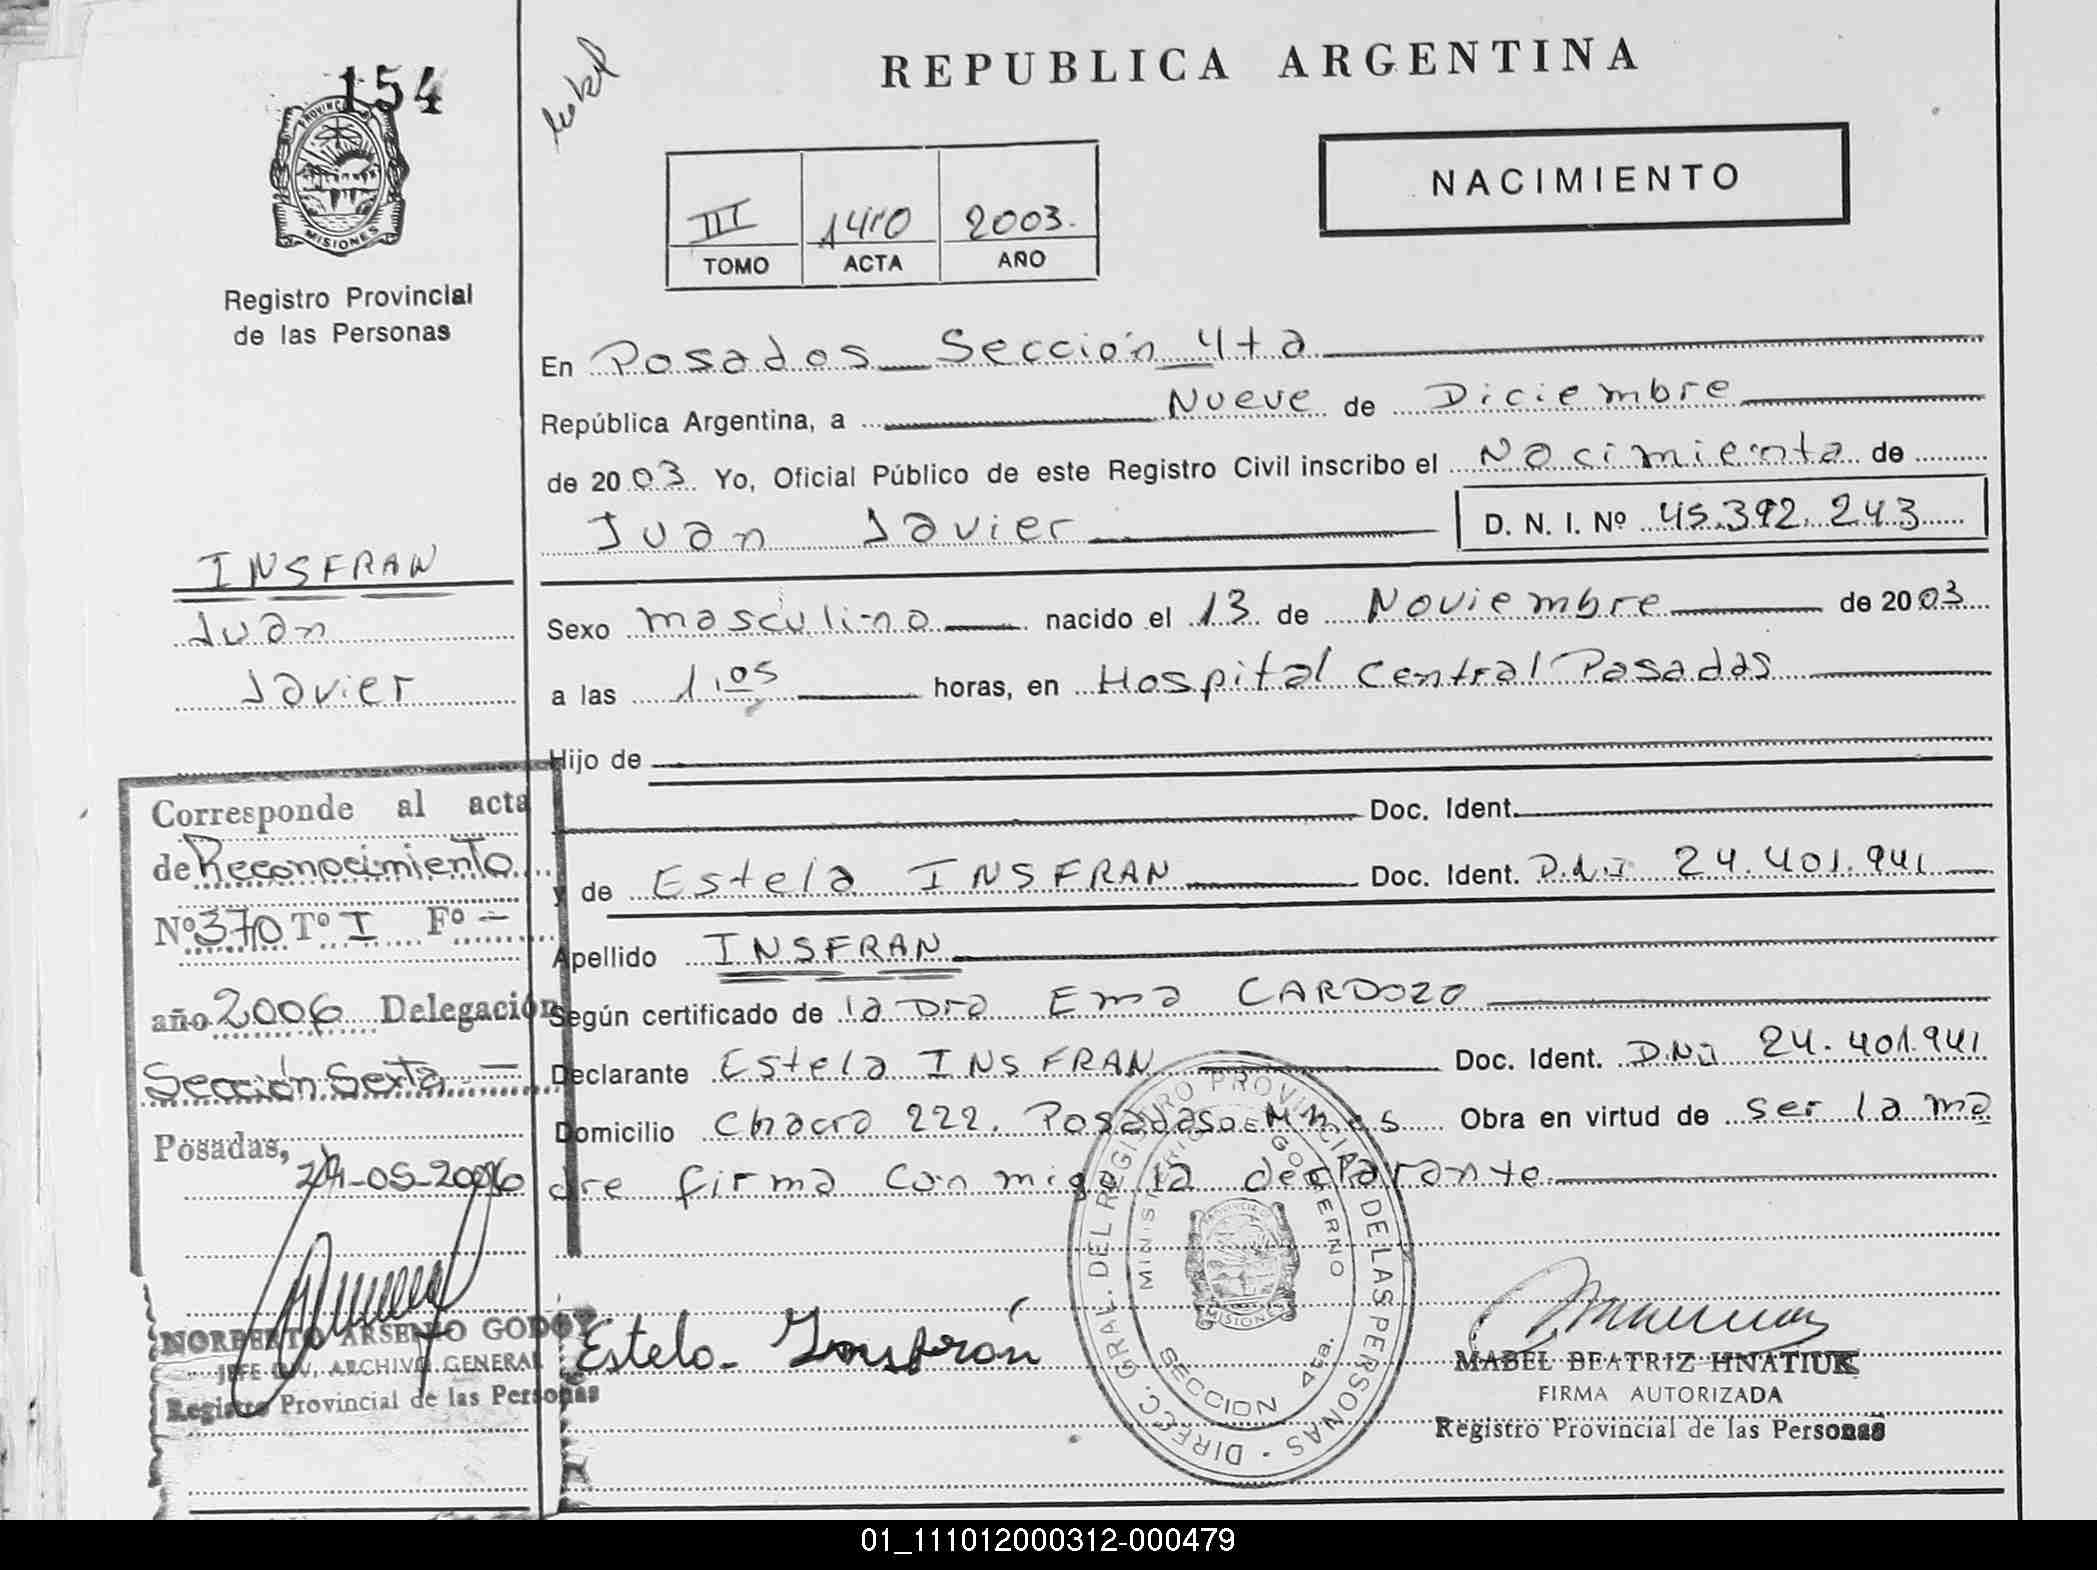 154
PROVINCIA DE
MISIONES
Registro Provincial
de las Personas
REPUBLICA ARGENTINA
NACIMIENTO
III 1410 2003.
TOMO ACTA AÑO
En Posadas Sección 4ta
República Argentina, a Nueve de Diciembre
de 2003 Yo, Oficial Público de este Registro Civil inscribo el Nacimiento de
Juan Javier D. N. I. Nº 45.392.243
INSFRAN
Juan
Javier
Sexo masculino nacido el 13 de Noviembre de 2003
a las 1.05 horas, en Hospital Central Posadas
Hijo de
Doc. Ident.
y de Estela INSFRAN Doc. Ident. D.N.I 24.401.941
Apellido INSFRAN
Según certificado de la Dra Ema CARDOZO
Declarante Estela INSFRAN Doc. Ident. D.N.I 24.401.941
Domicilio Chacra 222. Posadas Mnes Obra en virtud de ser la ma
dre firma conmigo la declarante
Corresponde al acta
de Reconocimiento
Nº 370 Tº I Fº -
año 2006 Delegación
Sección Sexta. -
Posadas,
-05-2006
NORBERTO ARSENIO GODOY
JEFE DIV. ARCHIVO GENERAL
Registro Provincial de las Personas
Estela Insfrán
DIREC. GRAL. DEL REGISTRO PROVINCIAL DE LAS PERSONAS
MINISTERIO DE GOBIERNO
MISIONES
SECCION 4ta.
MABEL BEATRIZ HNATIUK
FIRMA AUTORIZADA
Registro Provincial de las Personas
01_111012000312-000479